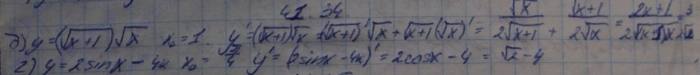 41.34
д) y = (√x+1)√x x₀=1. y' = (√x+1)√x = (√x+1)'√x + √x+1(√x)' = √x/2√x+1 + √x+1/2√x = 2x+1/2√(x+1)x
г) y = 2sinx - 4x x₀ = π/4 y' = (2sinx - 4x)' = 2cosx - 4 = √2 - 4